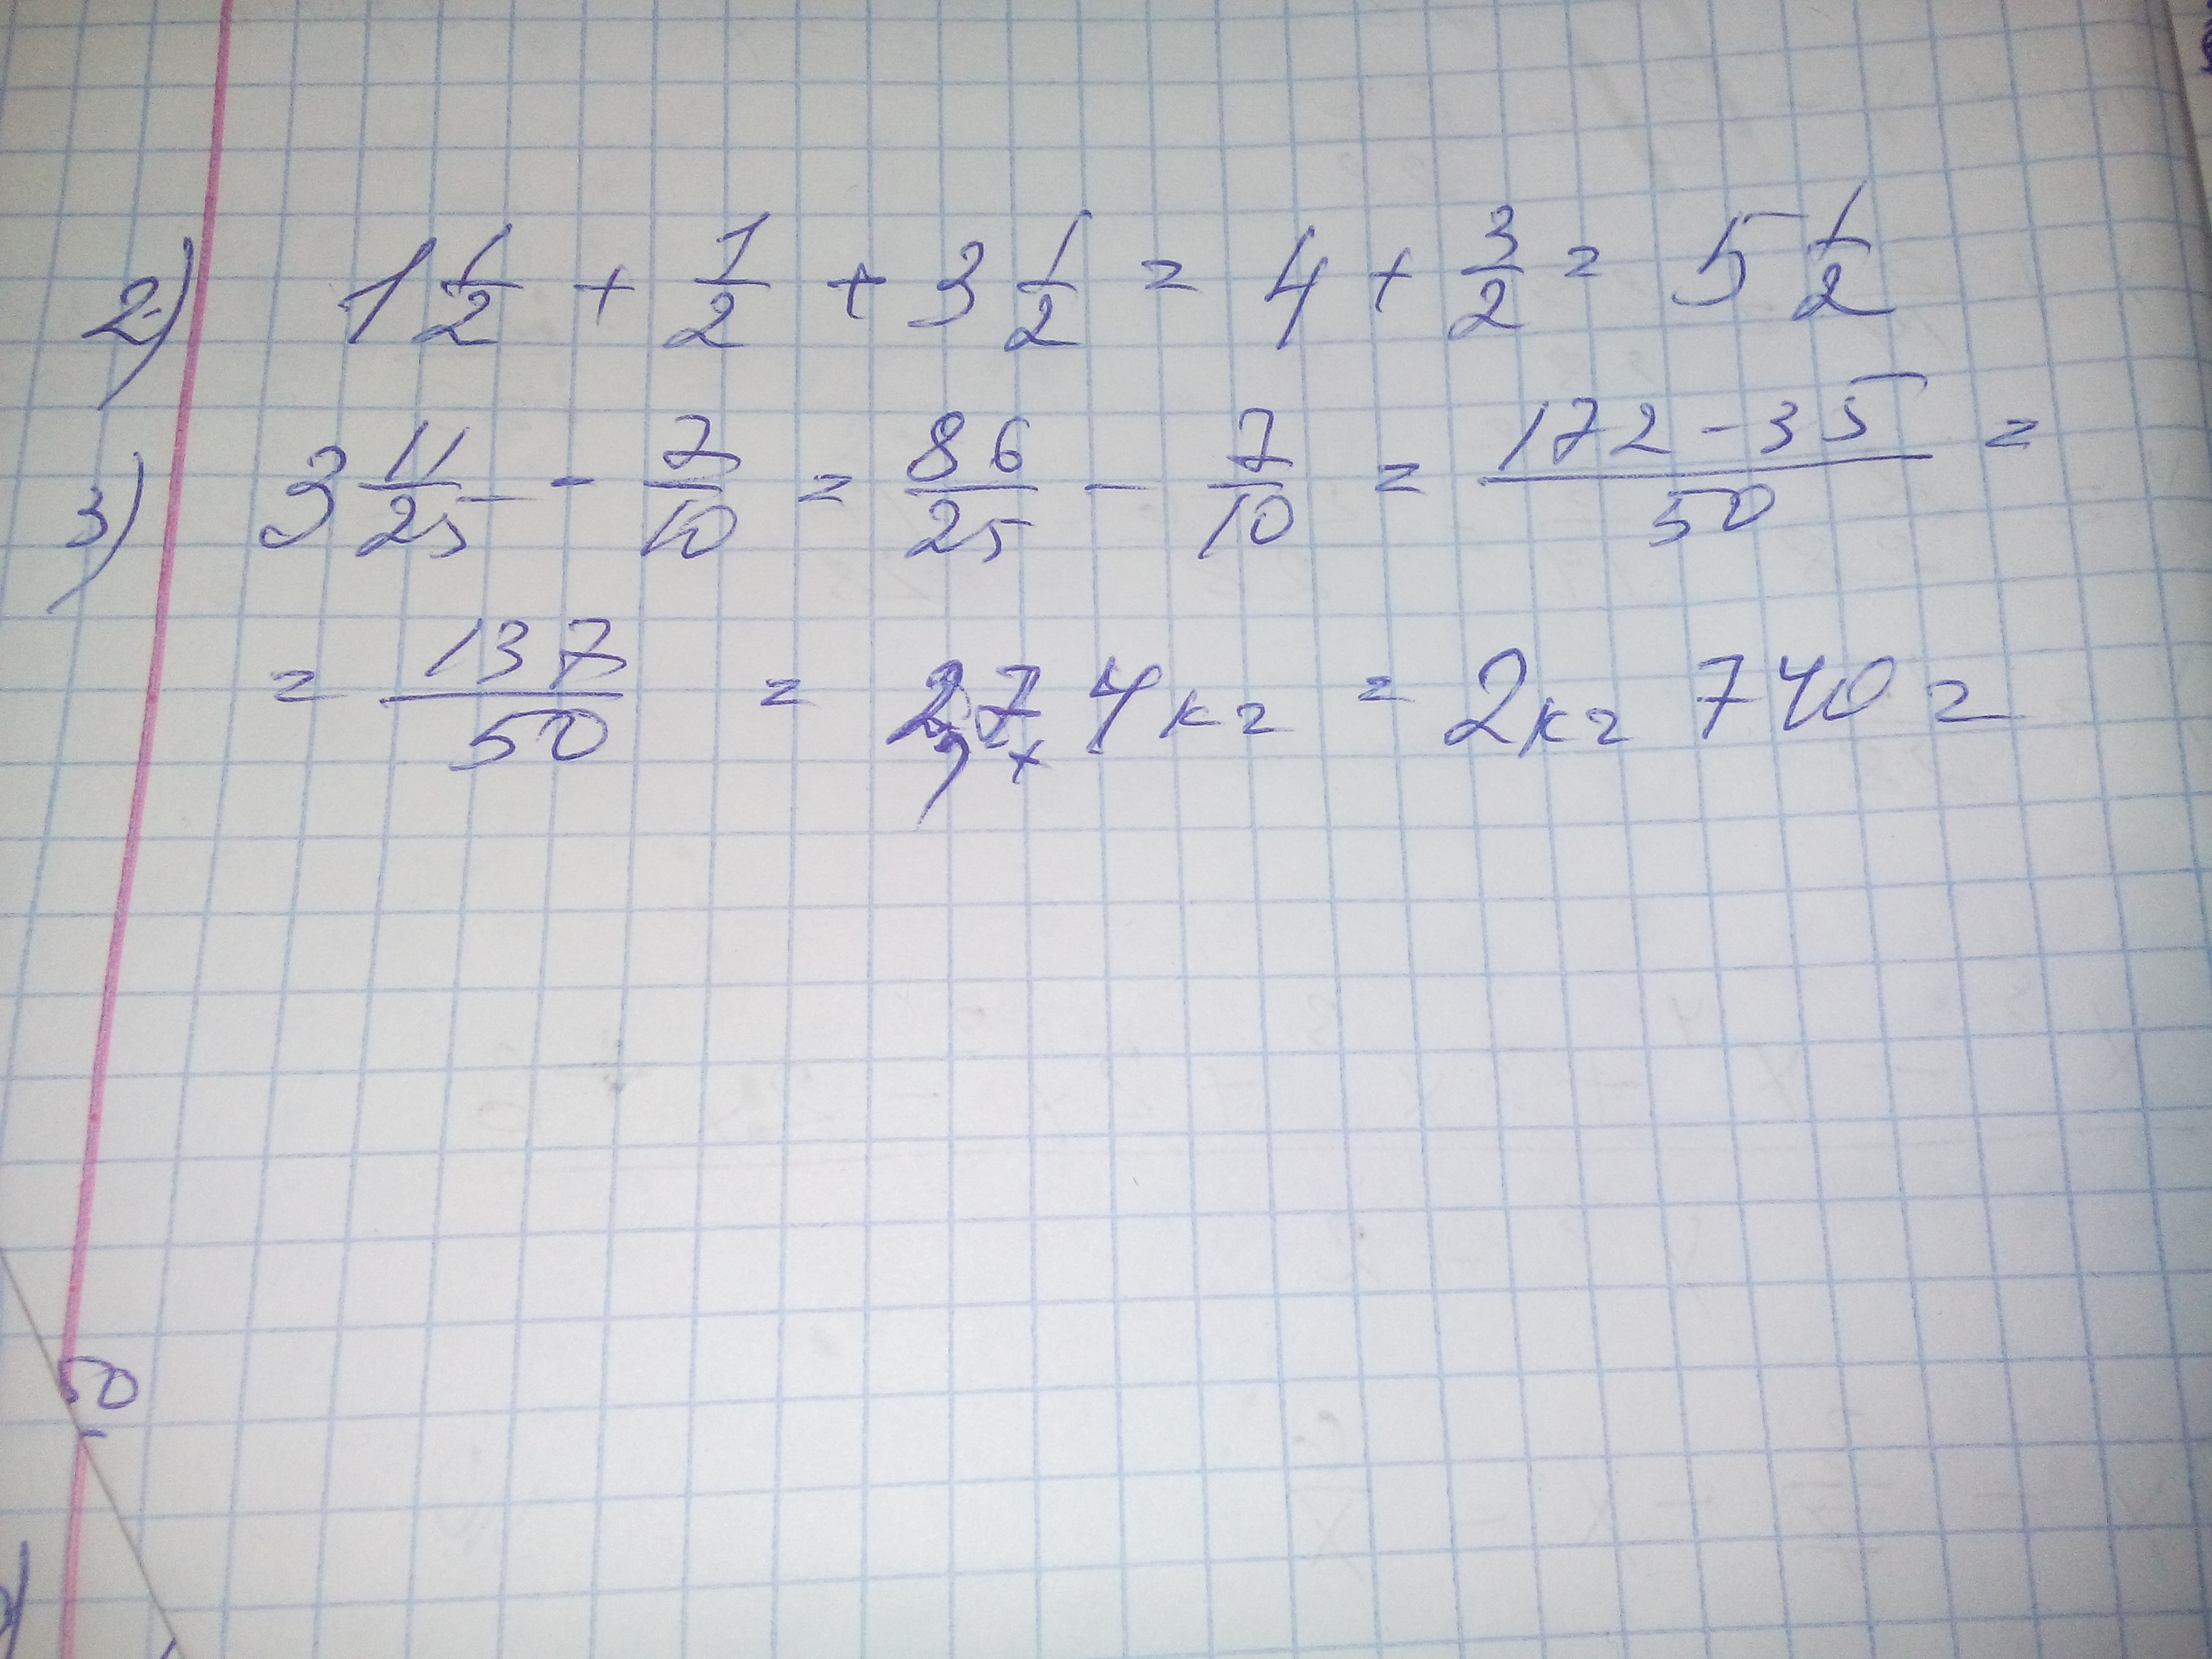 2) 1 1/2 + 1/2 + 3 1/2 = 4 + 3/2 = 5 1/2
3) 3 11/25 - 7/10 = 86/25 - 7/10 = (172-35)/50 =
= 137/50 = 2,74кг = 2кг 740г
50